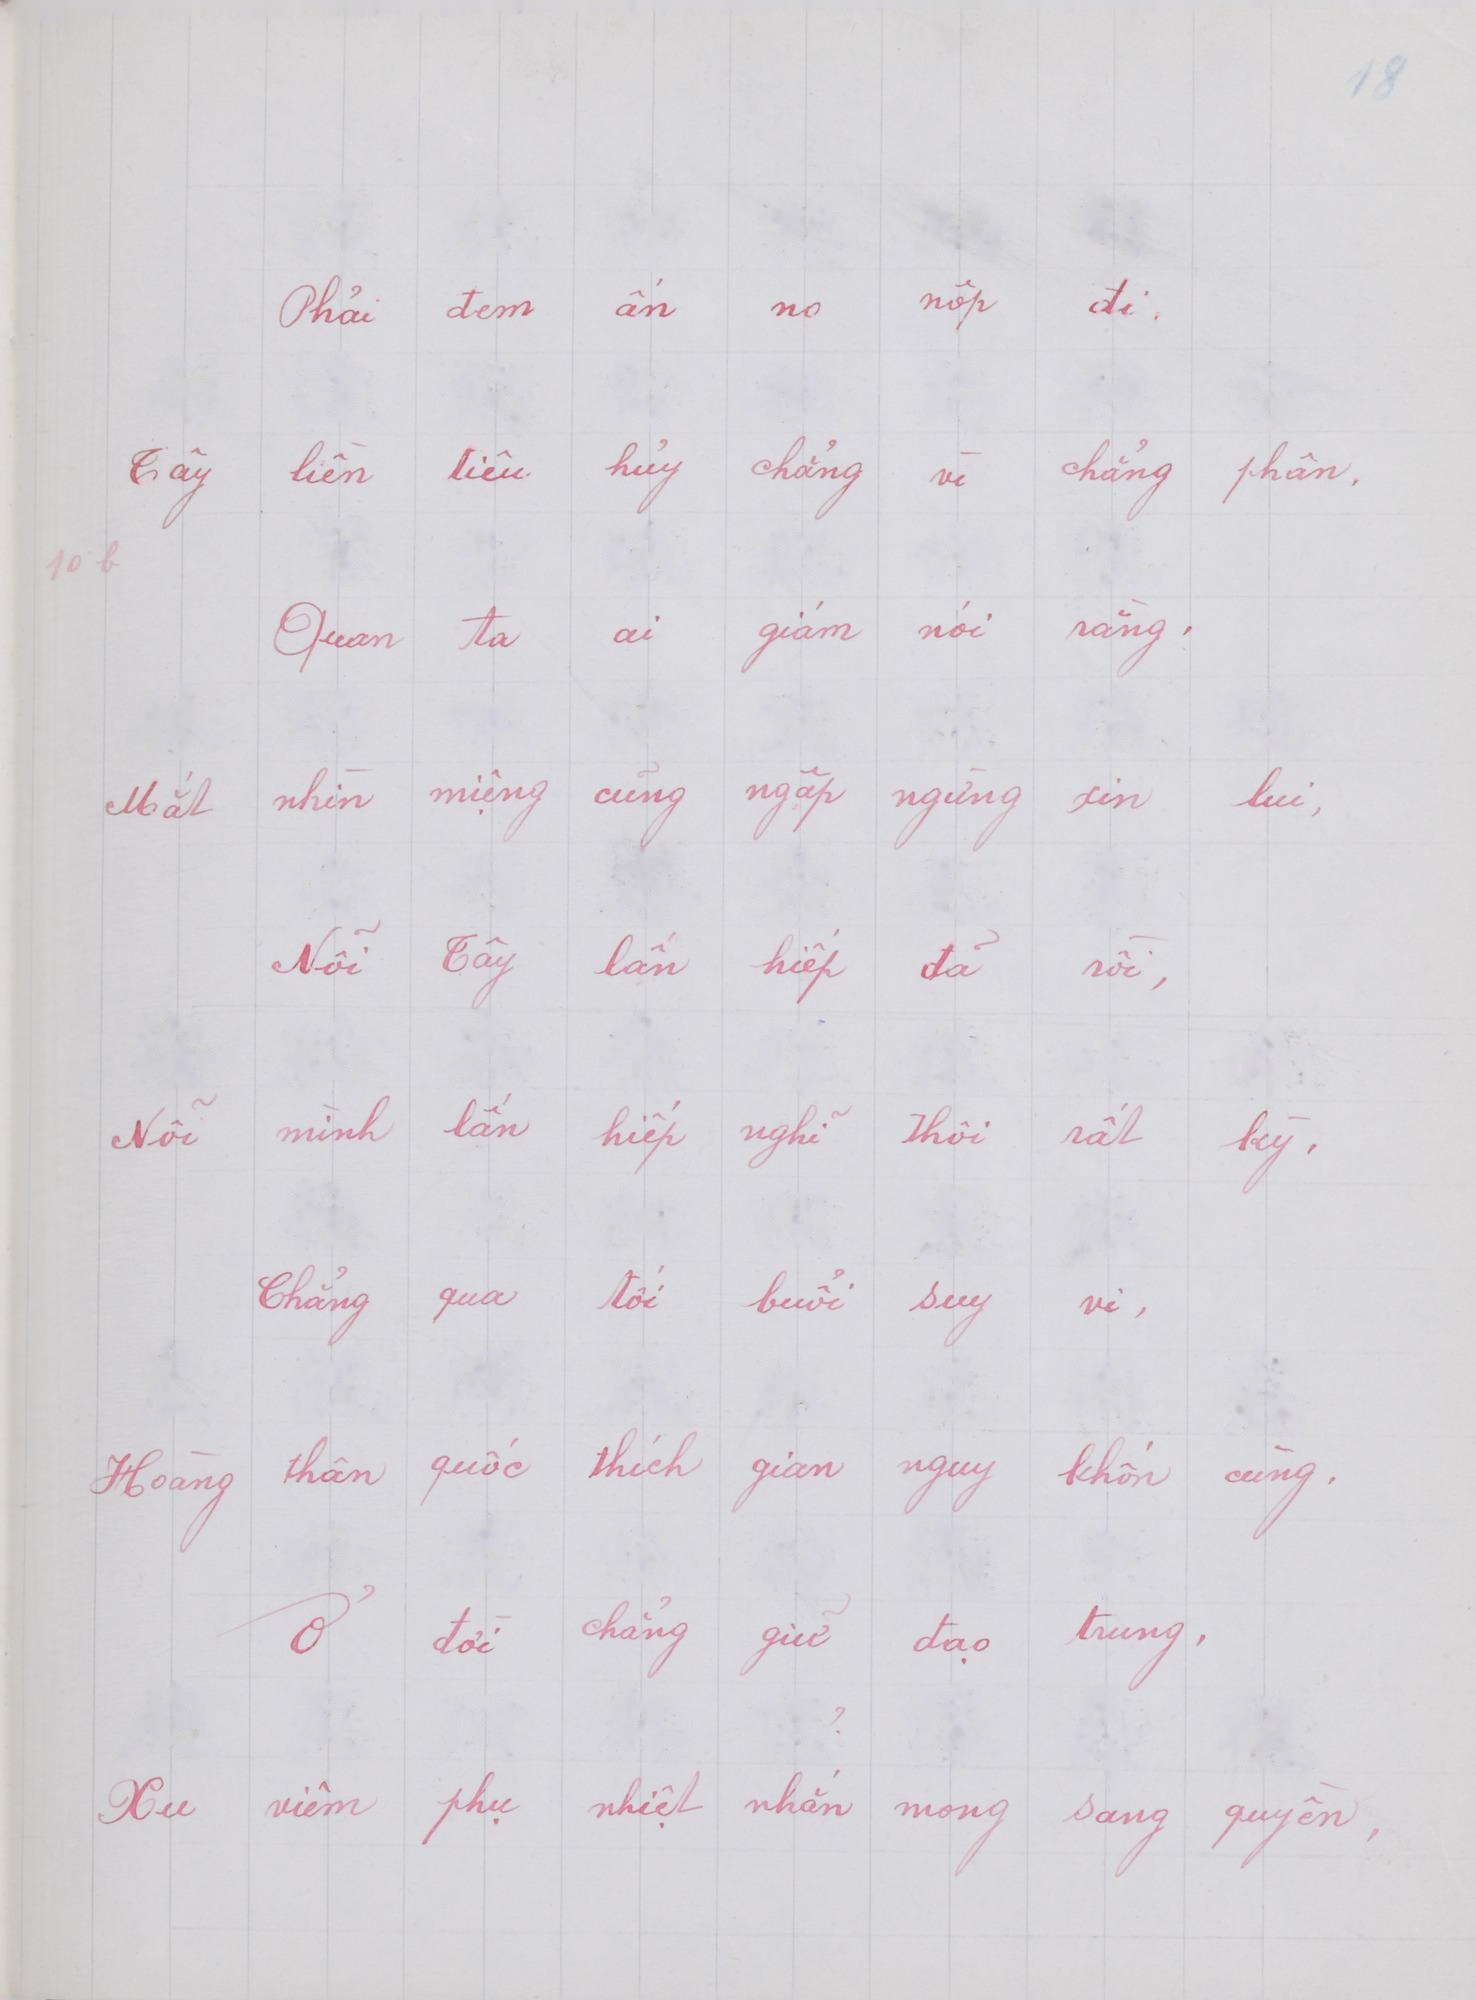 18
Phải đem ấn nọ nộp đi.
Tây liền tiêu hủy chẳng vì chẳng phân.
10 b
Quan ta ai giám nói rằng.
Mắt nhìn miệng cũng ngập ngừng xin lui,
Nỗi Tây lấn hiếp đã rồi,
Nỗi mình lấn hiếp nghĩ thôi rất kỳ.
Chẳng qua tới buổi suy vi,
Hoàng thân quốc thích gian nguy khốn cùng.
Ở đời chẳng giữ đạo trung,
?
Xu viêm phụ nhiệt nhắn mong sang quyền,